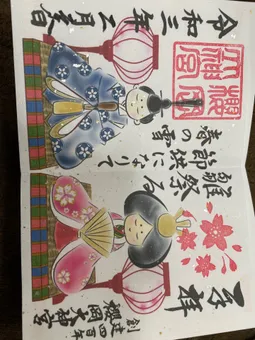 奉拝
創建四百年
櫻岡大神宮
雛祭る
節供になりて
春の雪
櫻岡大神宮
令和三年三月春日